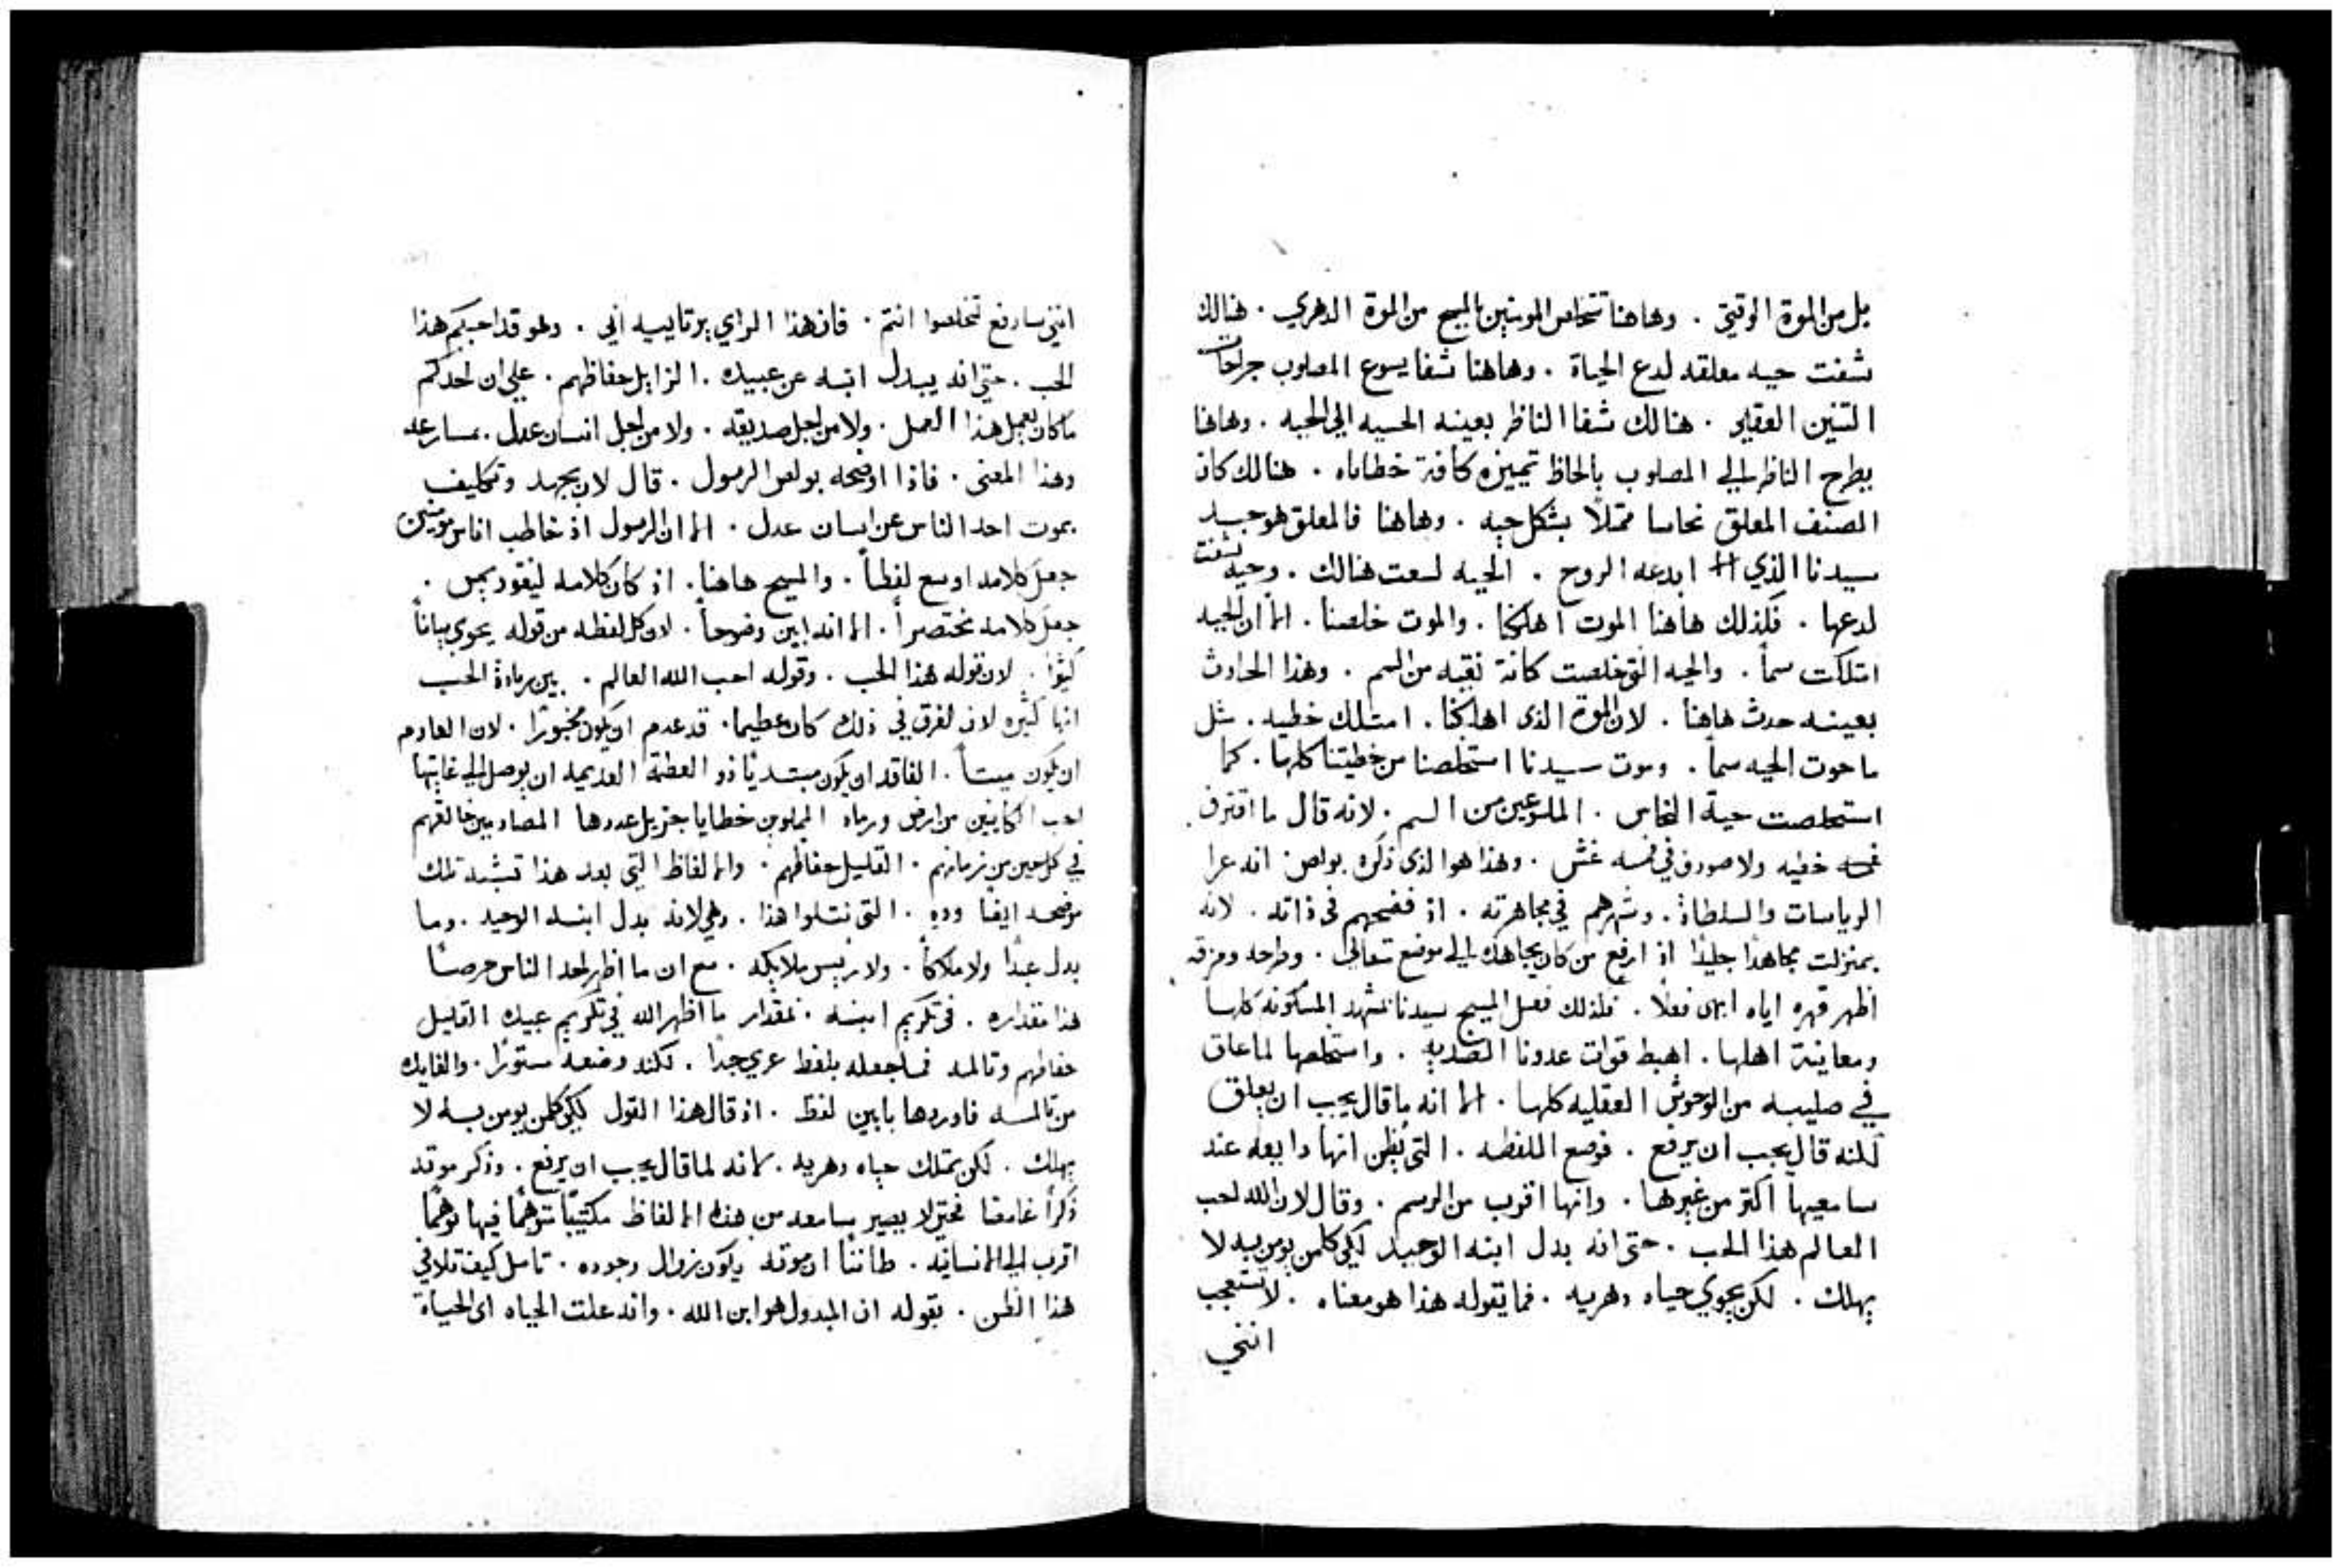 بل من الموة الوقتيّ . وهاهنا تتخلص المومنين بالمسيح من الموة الدهري . هنالك
شفت حيه معلقه لدع الحياة . وهاهنا شفا يسوع المصلوب جراحات
التنين العقلي . هنالك شفا الناظر بعينه الحسيه الي الحيه . وهاهنا
يطرح الناظر الي المصلوب بالحاظ تمييزه كافة خطاياه . هنالك كان
الصنف المعلق نحاسا ممثلاً بشكل حيه . وهاهنا فالمعلق هو جسد
سيدنا الذي ابدعه الروح . الحيه لسعت هنالك . وحيه شفت
لدعها . فلذلك هاهنا الموت اهلكنا . والموت خلصنا . الا ان الحيه
امتلكت سماً . والحيه التي خلصت كانة نقيه من السم . وهذا الحادث
بعينه حدث هاهنا . لان الموة الذي اهلكنا . امتلك خطيه . مثل
ما حوت الحيه سماً . وموت سيدنا استخلصنا من خطيتنا كلها . كما
استخلصت حية النحاس . الملسوعين من السم . لانه قال ما اقترف
خطيه ولا صودف في فمه غش . وهذا هو الذي ذكره بولص انه عرا
الرياسات والسلطاة . وشهرهم في مجاهرته . اذ فضحهم في ذاته . لانه
بمنزلت مجاهدًا جليدًا اذ ارفع من كان يجاهده الي موضع تعالى . وطرحه ومزقه
اظهر قهره اياه ابهى فعلاً . فلذلك فعل المسيح سيدنا بمشهد المسكونه كلها
ومعاينة اهلها . اهبط قوات عدونا الضديه . واستخلصها لما علق
في صليبه من الوحوش العقليه كلها . الا انه ما قال يجب ان يعلق
لكنه قال يجب ان يرفع . فوضع اللفظه . التي يظن انها دايعه عند
سامعيها اكثر من غيرها . وانها اقرب من الرسم . وقال لان الله احب
العالم هذا الحب . حتى انه بدل ابنه الوحيد لكي كلمن يومن به لا
يهلك . لكن يحوي حياه دهريه . فما يقوله هذا هو معناه . لا تتعجب
انني
انني سارفع لتخلصوا انتم . فان هذا الراي يرتاييه ابي . وهو قد احبكم هذا
الحب . حتى انه يبدل ابنه عن عبيده . الزايل حفاظهم . علي ان احدكم
ما كان يعمل هذا العمل . ولا من اجل صديقه . ولا من اجل انسان عدل . بمسارعه
وهذا المعنى . فاذا اوضحه بولص الرسول . قال لان بجهد وتكليف
يموت احد الناس عن انسان عدل . الا ان الرسول اذ خاطب اناس مومنين
جعل كلامه اوسع لفظاً . والمسيح هاهنا . اذ كان كلامه لنيقوديمس .
جعل كلامه مختصراً . الا انه ابين وضوحاً . لان كل لفظه من قوله يحوي بياناً
كثيرًا . لان قوله هذا الحب . وقوله احب الله العالم . يبين زيادة الحب
انها كثيره لان الفرق في ذلك كان عظيما . قد عدم ان يكون مخبورًا . لان العادم
ان يكون ميتاً . الفاقد ان يكون مبتديًا ذو العظمة العديمه ان يوصل الي غايتها
احب الكاينين من ارض ورماد المملوين خطايا جزيل عددها المصادمين خالقهم
في كل حين من زمانهم . القليل حفاظهم . والالفاظ التي بعد هذا تبثه تلك
موضحه ايضا وده . التي نتلوا هذا . وهي لانه بدل ابنه الوحيد . وما
بدل عبدًا ولا ملاكاً . ولا رييس ملايكه . مع ان ما اظهر احد الناس حرصًا
هذا مقداره . في تكريم ابنه . بمقدار ما اظهر الله في تكريم عبيده القليل
حفاظهم وتالمه فما جعله بلفظ عري جدًا . لكنه وضعه مستورًا . والفايده
من تالمه فاوردها بابين لفظ . اذ قال هذا القول لكي كلمن يومن به لا
يهلك . لكن يمتلك حياه دهريه . لانه لما قال يجب ان يرفع . وذكر موته
ذكرًا غامضا فحتى لا يصير سامعه من هذه الالفاظ مكتيبًا متوهمًا فيها توهمًا
اقرب الي الانسانيه . ظانًا ان موته يكون بزوال وجوده . تامل كيف تلافي
هذا الظن . بقوله ان المبدول هو ابن الله . وانه علت الحياه اي الحياة